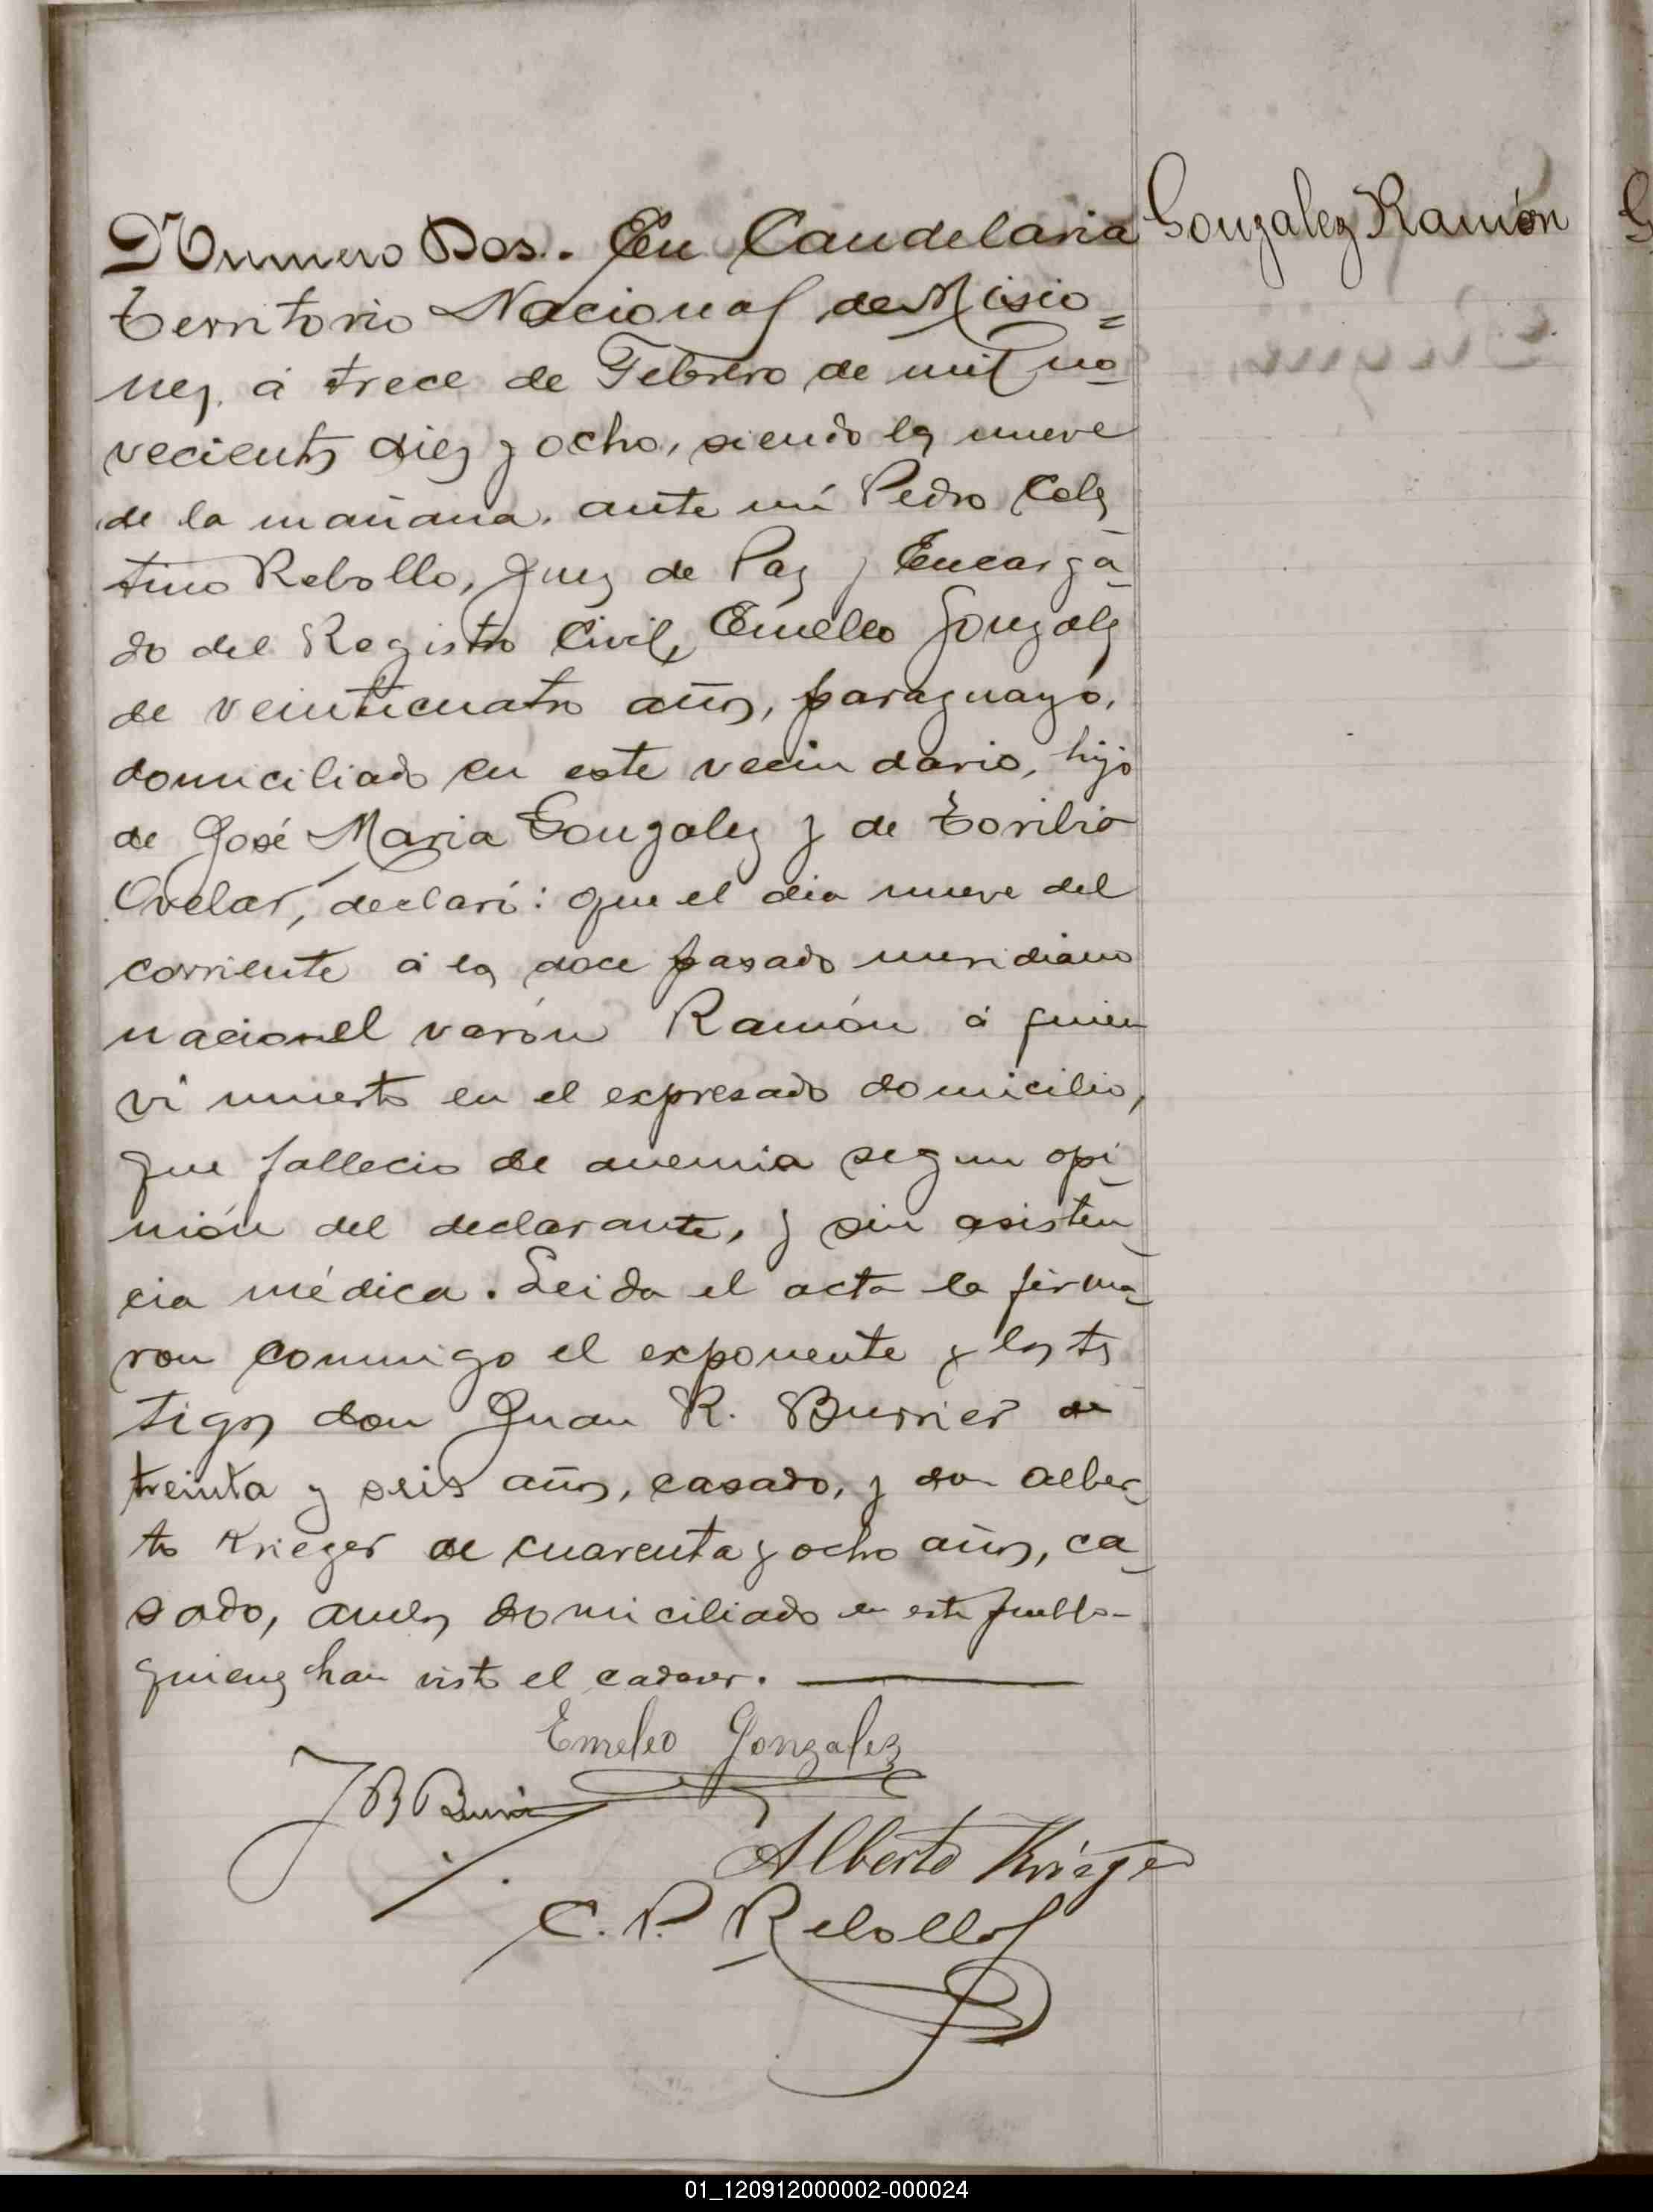 Numero Dos.. En Candelaria
Gonzalez Ramón
Territorio Nacional de Misio=
nes, á trece de Febrero de mil no-
vecientos diez y ocho, siendo las nueve
de la mañana, ante mi Pedro Celes
tino Rebollo, Juez de Paz y Encarga-
do del Registro Civil, Emeleo Gonzalez
de veinticuatro años, paraguayo,
domiciliado en este vecindario, hijo
de José Maria Gonzalez y de Toribia
Ovelar, declaró: Que el dia nueve del
corriente á las doce pasado meridiano
nacio el varón Ramón á quien
vi muerto en el expresado domicilio,
que fallecio de anemia segun opi-
nión del declarante, y sin asisten-
cia médica. Leida el acta la firma-
ron conmigo el exponente y los tes
tigos don Juan R. Burrier de
treinta y seis años, casado, y don Alber-
to Krieger de cuarenta y ocho años, ca-
sado, ambos domiciliado en este pueblo-
quienes han visto el cadaver.
Emeleo Gonzalez
J B
Alberto Krieger
C. P. Rebollo
01_120912000002-000024